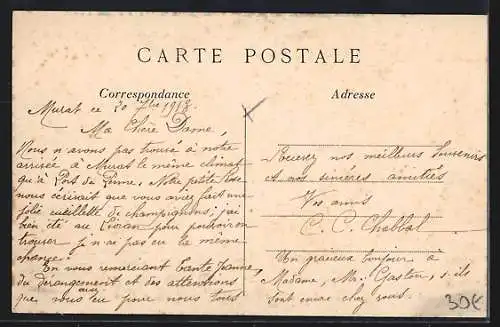 CARTE POSTALE
Correspondance
Adresse
Murat ce 20 7bre 1918.
Ma Chère Dame,
Nous n'avons pas trouvé à notre
arrivée à Murat le même climat
qu'à Port de Penne, Notre petite Rose
nous écrivait que vous aviez fait une
jolie cueillette de champignons; j'ai
bien été au Lioran pour pouvoir en
trouver je n'ai pas eu la même
chance!
En vous remerciant Tante Jeanne,
du dérangement et des attentions
que vous eu pour nous tous
avez
Recevez nos meilleurs Souvenirs
et nos sincères amitiés
Vos amis
C. C. Chabbal
Un gracieux bonjour à
Madame, Mr. Gaston, s'ils
sont encore chez vous.
30€